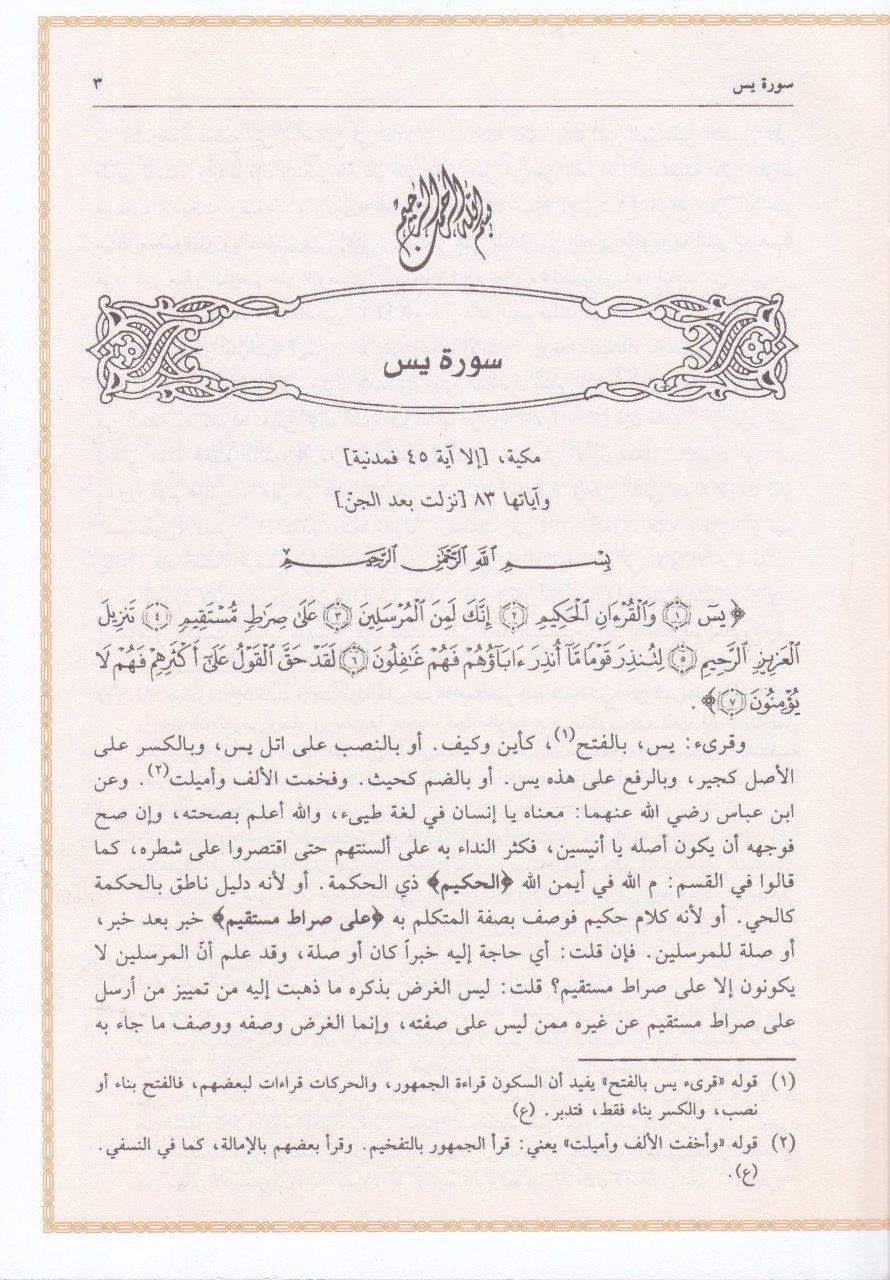 سورة يس
٣
بسم الله الرحمن الرحيم
سورة يس
مكية، [إلا آية ٤٥ فمدنية]
وآياتها ٨٣ [نزلت بعد الجنّ]
بِسْمِ اللَّهِ الرَّحْمَٰنِ الرَّحِيمِ
﴿يسٓ ﴿١﴾ وَٱلْقُرْءَانِ ٱلْحَكِيمِ ﴿٢﴾ إِنَّكَ لَمِنَ ٱلْمُرْسَلِينَ ﴿٣﴾ عَلَىٰ صِرَٰطٍ مُّسْتَقِيمٍ ﴿٤﴾ تَنزِيلَ
ٱلْعَزِيزِ ٱلرَّحِيمِ ﴿٥﴾ لِتُنذِرَ قَوْمًا مَّآ أُنذِرَ ءَابَآؤُهُمْ فَهُمْ غَٰفِلُونَ ﴿٦﴾ لَقَدْ حَقَّ ٱلْقَوْلُ عَلَىٰٓ أَكْثَرِهِمْ فَهُمْ لَا
يُؤْمِنُونَ ﴿٧﴾﴾.
وقرىء: يس، بالفتح(١)، كأين وكيف. أو بالنصب على اتل يس، وبالكسر على
الأصل كجير، وبالرفع على هذه يس. أو بالضم كحيث. وفخمت الألف وأميلت(٢). وعن
ابن عباس رضي الله عنهما: معناه يا إنسان في لغة طيىء، والله أعلم بصحته، وإن صح
فوجهه أن يكون أصله يا أنيسين، فكثر النداء به على ألسنتهم حتى اقتصروا على شطره، كما
قالوا في القسم: م الله في أيمن الله ﴿الحكيم﴾ ذي الحكمة. أو لأنه دليل ناطق بالحكمة
كالحي. أو لأنه كلام حكيم فوصف بصفة المتكلم به ﴿على صراط مستقيم﴾ خبر بعد خبر،
أو صلة للمرسلين. فإن قلت: أي حاجة إليه خبراً كان أو صلة، وقد علم أنّ المرسلين لا
يكونون إلا على صراط مستقيم؟ قلت: ليس الغرض بذكره ما ذهبت إليه من تمييز من أرسل
على صراط مستقيم عن غيره ممن ليس على صفته، وإنما الغرض وصفه ووصف ما جاء به
(١) قوله «قرىء يس بالفتح» يفيد أن السكون قراءة الجمهور، والحركات قراءات لبعضهم، فالفتح بناء أو
نصب، والكسر بناء فقط، فتدبر. (ع)
(٢) قوله «وأخفت الألف وأميلت» يعني: قرأ الجمهور بالتفخيم. وقرأ بعضهم بالإمالة، كما في النسفي.
(ع).